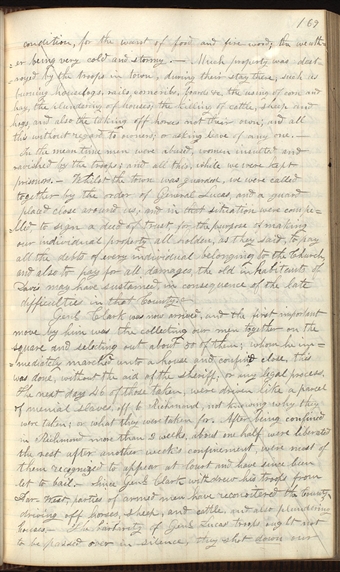 169
condition, for the want of food and fire wood, the weath=
=er being very cold and stormy. — Much property was dest=
royed by the troops in town, during their stay there, such as
burning house logs, rails, corncribs, boards &c. the using of corn and
hay, the plundering of houses, the killing of cattle, sheep and
hogs and also the taking off horses not their own; and all
this without regard to owners; or asking leave of any one. —
In the mean time, men were abused, women insulted and
ravished by the troops; and all this, while we were kept
prisoners. — Whilst the town was guarded, we were called
together by the order of General Lucas, and a guard
placed close around us, and in that situation were compe=
lled to sign a deed of trust, for the purpose of making
our individual property all holden, as they said, to pay
all the debts of every individual belonging to the Church,
and also to pay for all damages, the old inhabitants of
Davis may have sustained, in consequence of the late
difficulties in that County. —
Genl. Clark was now arrived, and the first important
move by him was the collecting our men together on the
square and selecting out about 50 of them; whom he im=
=mediately marched into a house and confined close; this
was done, without the aid of the sheriff, or any legal process.
The next day 46 of those taken, were driven like a parcel
of menial slaves, off to Richmond, not knowing why they
were taken; or what they were taken for. After being confined
in Richmond more than 2 weeks, about one half were liberated
the rest after another week's confinement, were most of
them recognized to appear at court and have since been
let to bail. — Since Genl. Clark withdrew his troops from
Far West, parties of armed men have the County,
driving off horses, sheep, and cattle, and also plundering
houses. — The barbarity of Genl. Lucas' troops ought not
to be passed over in silence, they shot down our